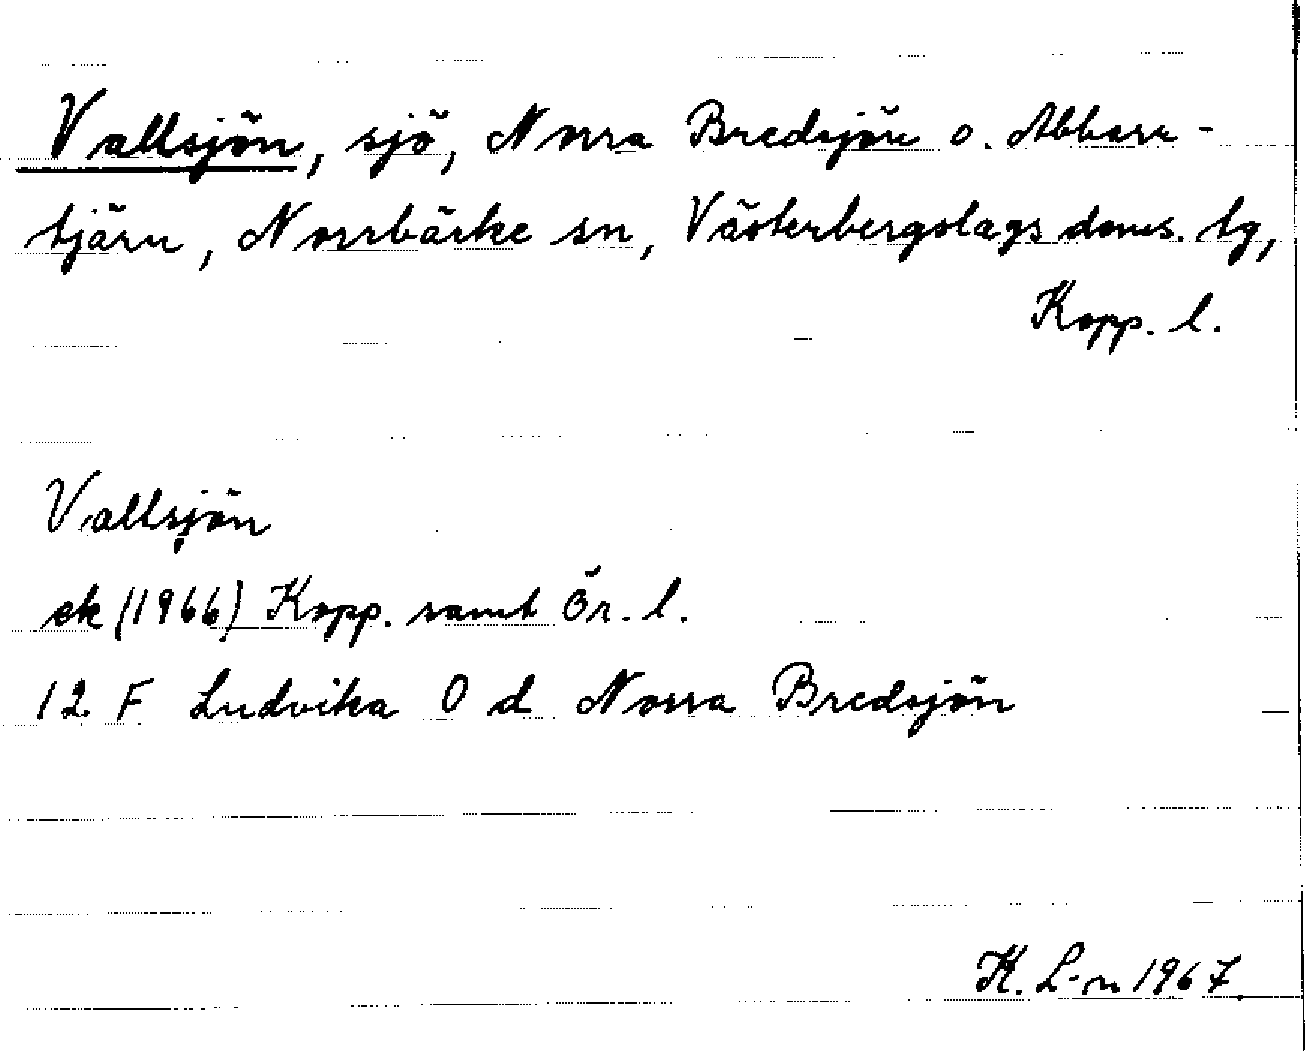 Vallsjön, sjö, Norra Bredsjön o. Abborr-
tjärn, Norrbärke sn, Västerbergslags doms. tg,
Kopp. l.
Vallsjön
ek (1966) Kopp. samt Ör. l.
12 F Ludvika 0 d Norra Bredsjön
K. L-n 1967